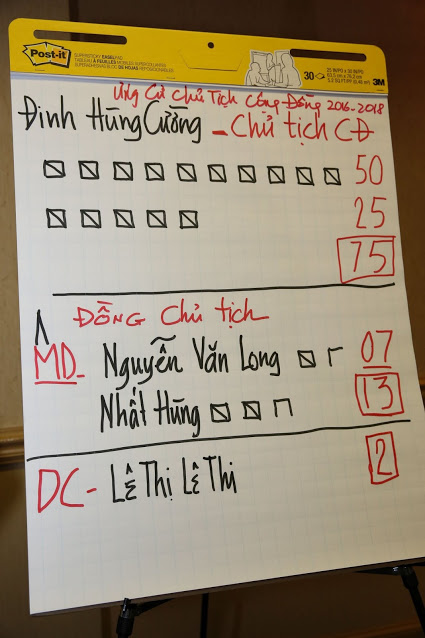 Post-it
SUPER STICKY EASEL PAD
30
25 IN/PO x 30 IN/PO
63.5 cm x 76.2 cm
3M
Ứng Cử Chủ Tịch Cộng Đồng 2016-2018
Đinh Hùng Cường - Chủ tịch CĐ
50
25
75
ĐỒNG Chủ tịch
MD - Nguyễn Văn Long 07
Nhất Hùng 13
DC - Lê Thị Lê Thi 2